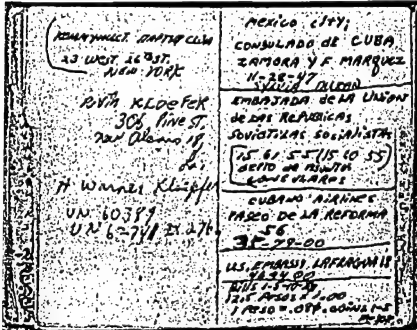 23 WEST 26 ST.
NEW YORK
RUTH KLOEPFER
306 PINE ST
New Orleans 18,
La.
H Warner Kloepfer
UN 60389
MEXICO CITY;
CONSULADO DE CUBA
ZAMORA Y F. MARQUEZ
11-28-47
SYLVIA DURAN
EMBAJADA DE LA UNION
DE LAS REPUBICAS
SOVIETIVAS SOCIALISTAS
15 61 55 (15 60 55)
DEPTO DE
CONSULARIOS
CUBANO AIRLINES
PASEO DE LA REFORMA
56
35-79-00
U.S. EMBASSY, LAFRAGUA 18
12.5 PESOS =
1 PESO = .08¢,